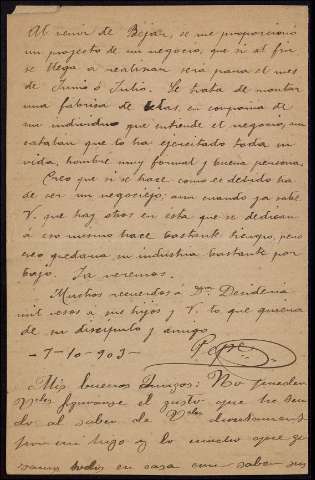 Al venir de Béjar, se me proporcionó
un projecto de un negocio, que si al fin
se llega á realizar será para el mes
de Junio ó Julio. Se trata de montar
una fabrica de telas, en compañia de
un individuo que entiende el negocio, un
catalan que lo ha ejercitado toda su
vida, hombre muy formal y buena persona.
Creo que si se hace como es debido ha
de ser un negociejo; aun cuando ya sabe
V. que hay otros en esta que se dedican
á eso mismo hace bastante tiempo, pero
eso quedaria su industria bastante por
bajo. Ya veremos.
Muchos recuerdos á Dña Desideria
mil besos á sus hijos y V. lo que quiera
de su discipulo y amigo
Pepe
-7-10-903-
Mis buenos Amigos: No pueden
Vdes figurarse el gusto que he teni
do al saber de Vdes directament
por mi hijo y lo mucho que go
zamos todos en casa con saber sus